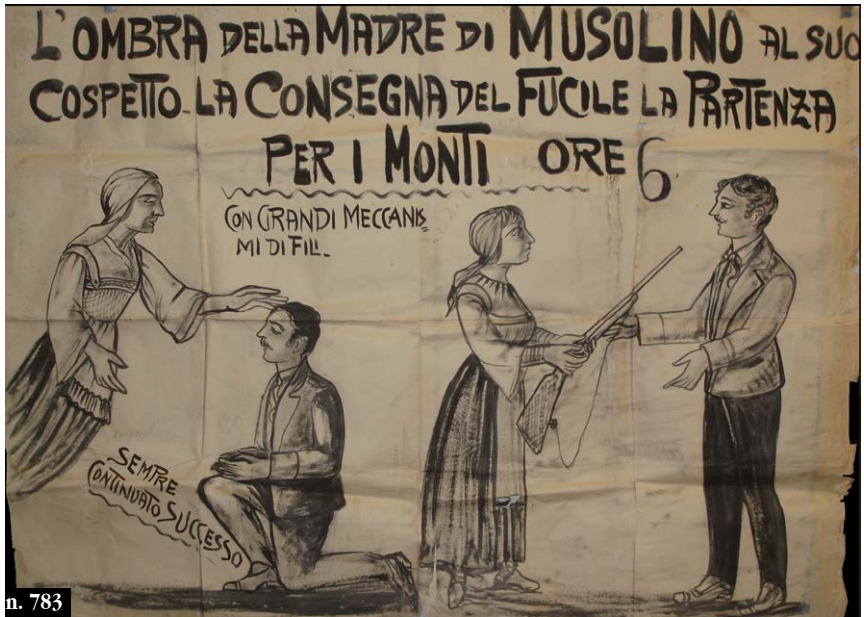 L'OMBRA DELLA MADRE DI MUSOLINO AL SUO
COSPETTO - LA CONSEGNA DEL FUCILE LA PARTENZA
PER I MONTI ORE 6
CON GRANDI MECCANIS=
MI DI FILI_
SEMPRE
CONTINUATO SUCCESSO
n. 783